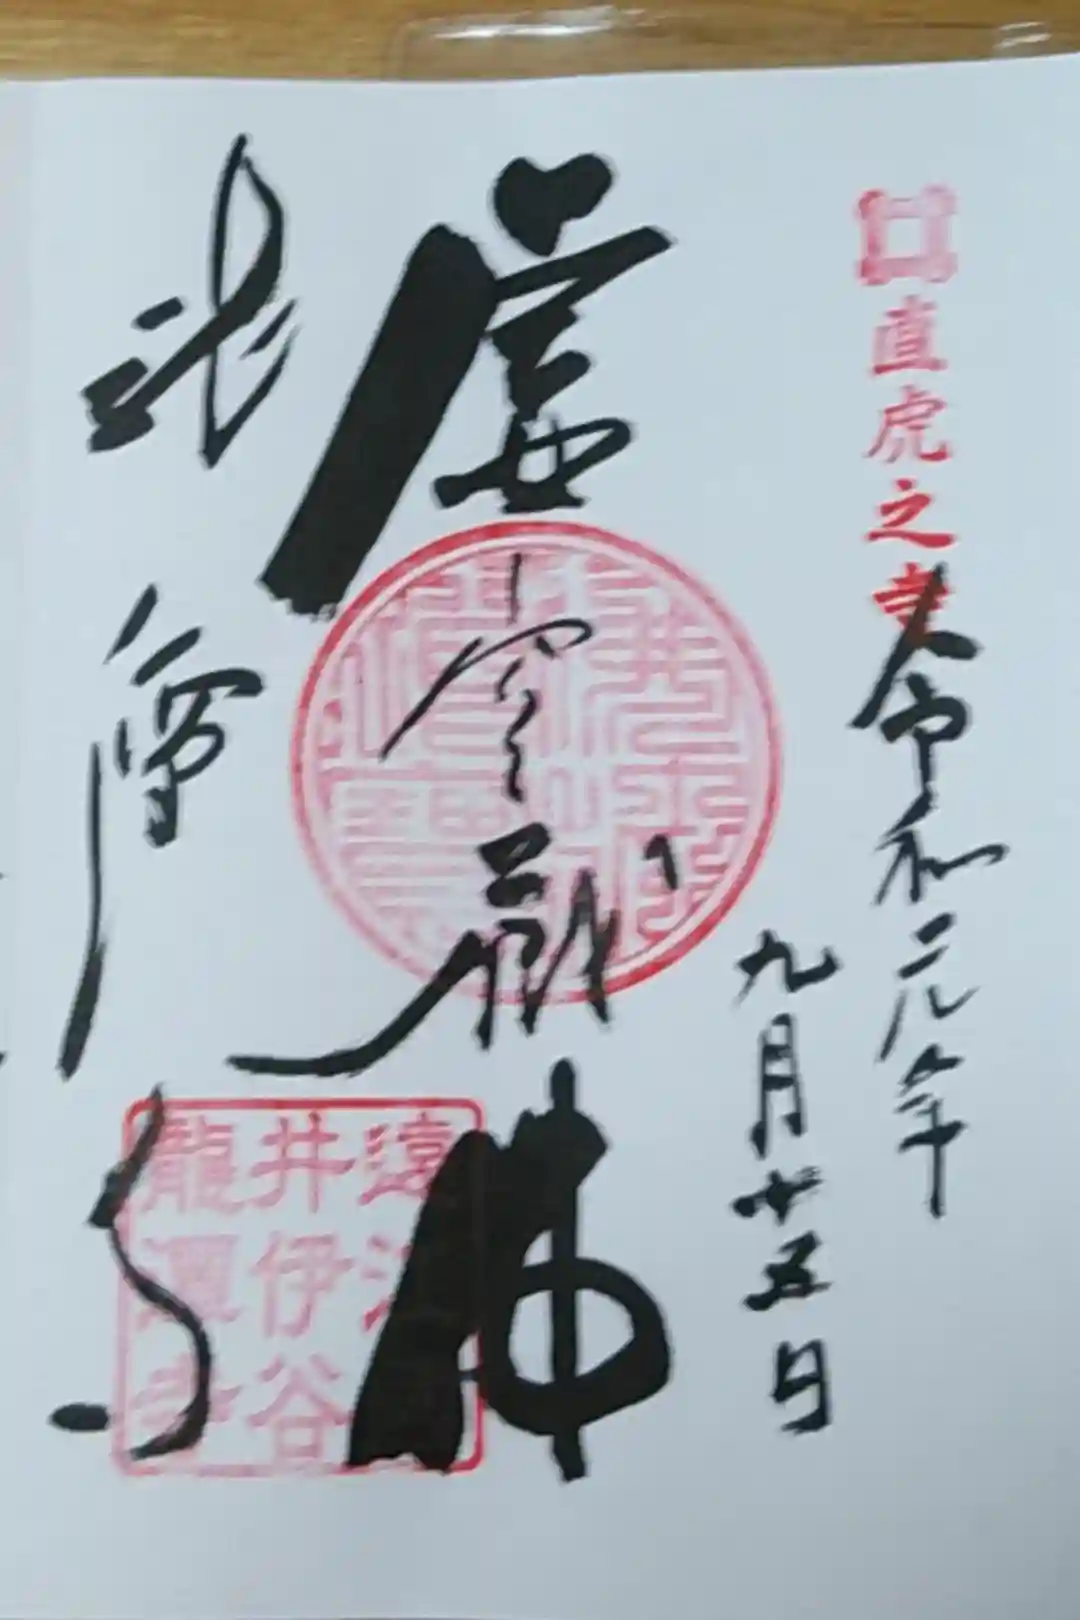 直虎之寺
令和元年
九月廿五日
虚空蔵
佛
龍潭寺
遠江
井伊谷
龍潭寺